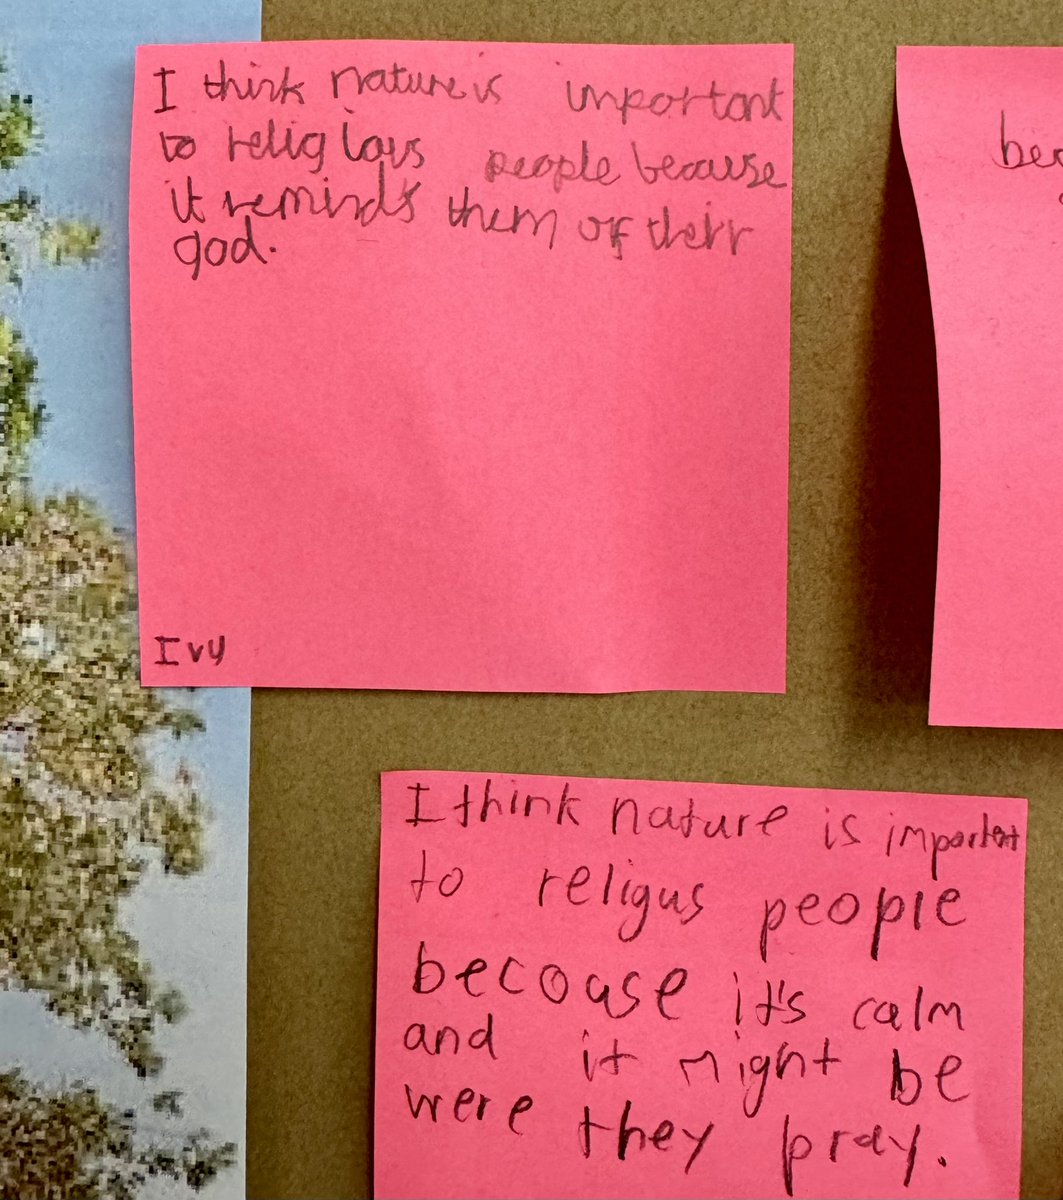 I think nature is important
to religious people because
it reminds them of their
god.
Ivy
I think nature is important
to religus people
becouse it's calm
and it might be
were they pray.